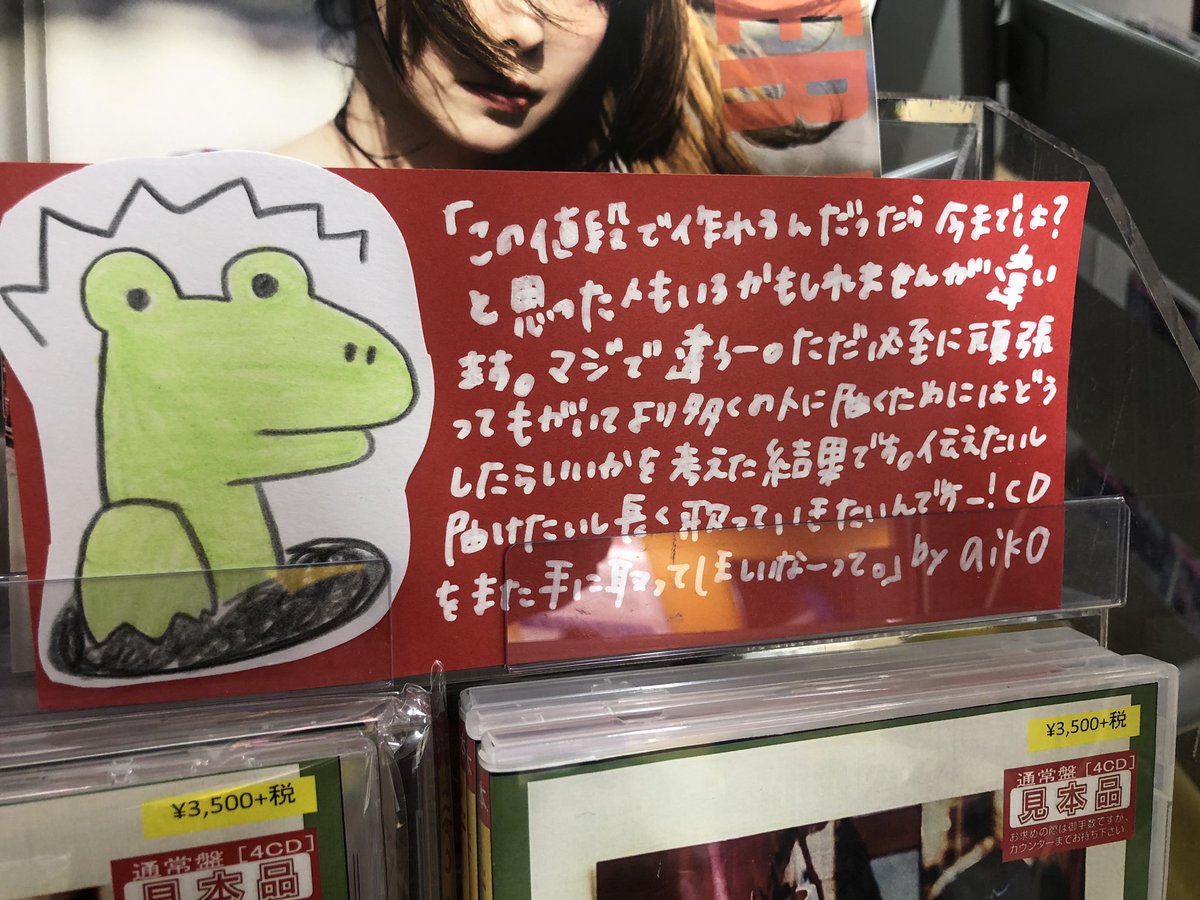 「この値段で作れるんだったら 今までしは?
と思った人もいるかもしれませんが違い
ます。マジで違うー。ただ必至に頑張
ってもがいてより多くの人に届くためにはどう
したらいいかを考えた結果です。伝えたいし
届けたいし長く歌っていきたいんですー!CD
をまた手に取ってほしいなーって。」by aiko
¥3,500+税
通常盤[4CD]
見本品
¥3,500+税
通常盤[4CD]
見本品
お求めの際は御手数ですが、
カウンターまでお持ち下さい。